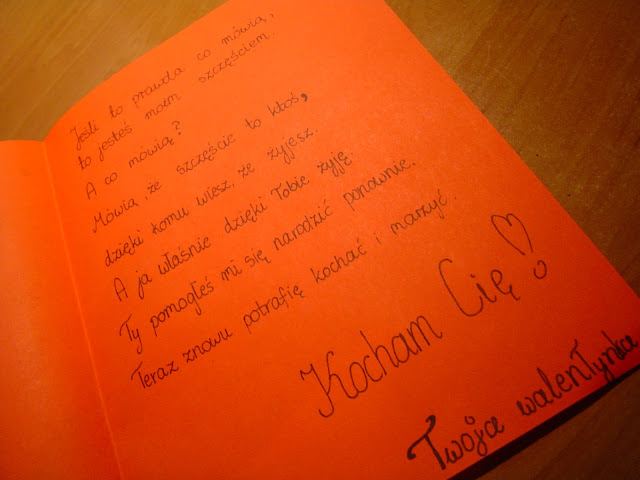 Jeśli to prawda co mówią,
to jesteś moim szczęściem.
A co mówią?
Mówią, że szczęście to ktoś,
dzięki komu wiesz, że żyjesz.
A ja właśnie dzięki Tobie żyję.
Ty pomogłeś mi się narodzić ponownie.
Teraz znowu potrafię kochać i marzyć.
Kocham Cię!
Twoja walenTynka